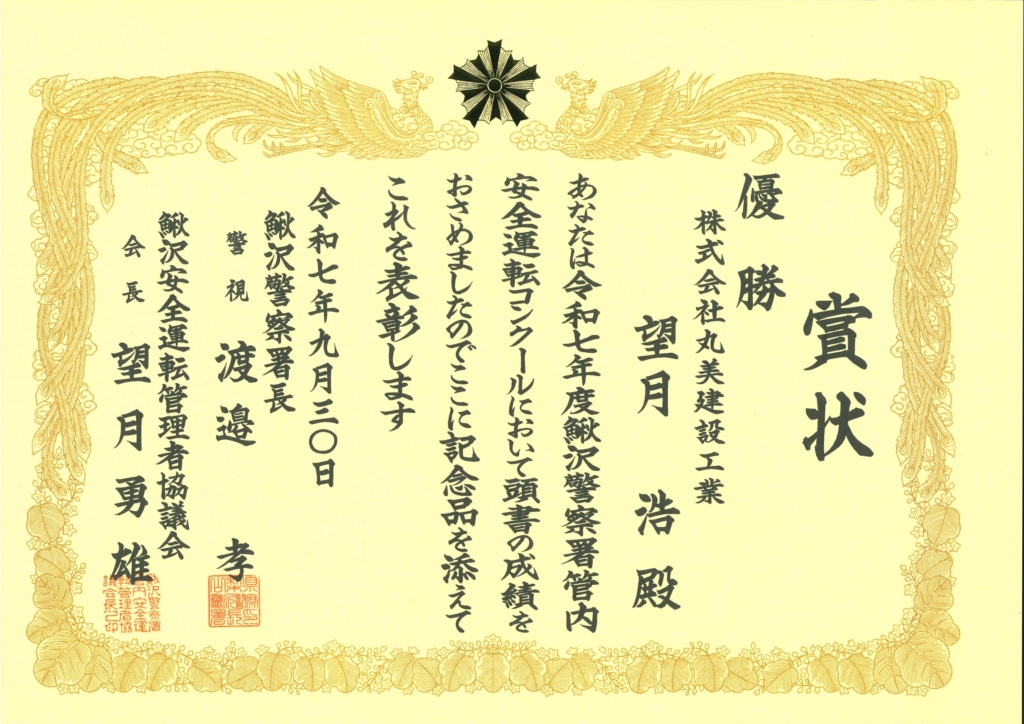 賞状
優勝
株式会社丸美建設工業
望月 浩 殿
あなたは令和七年度鰍沢警察署管内
安全運転コンクールにおいて頭書の成績を
おさめましたのでここに記念品を添えて
これを表彰します
令和七年九月三〇日
鰍沢警察署長
警視 渡邉 孝
鰍沢安全運転管理者協議会
会長 望月勇雄